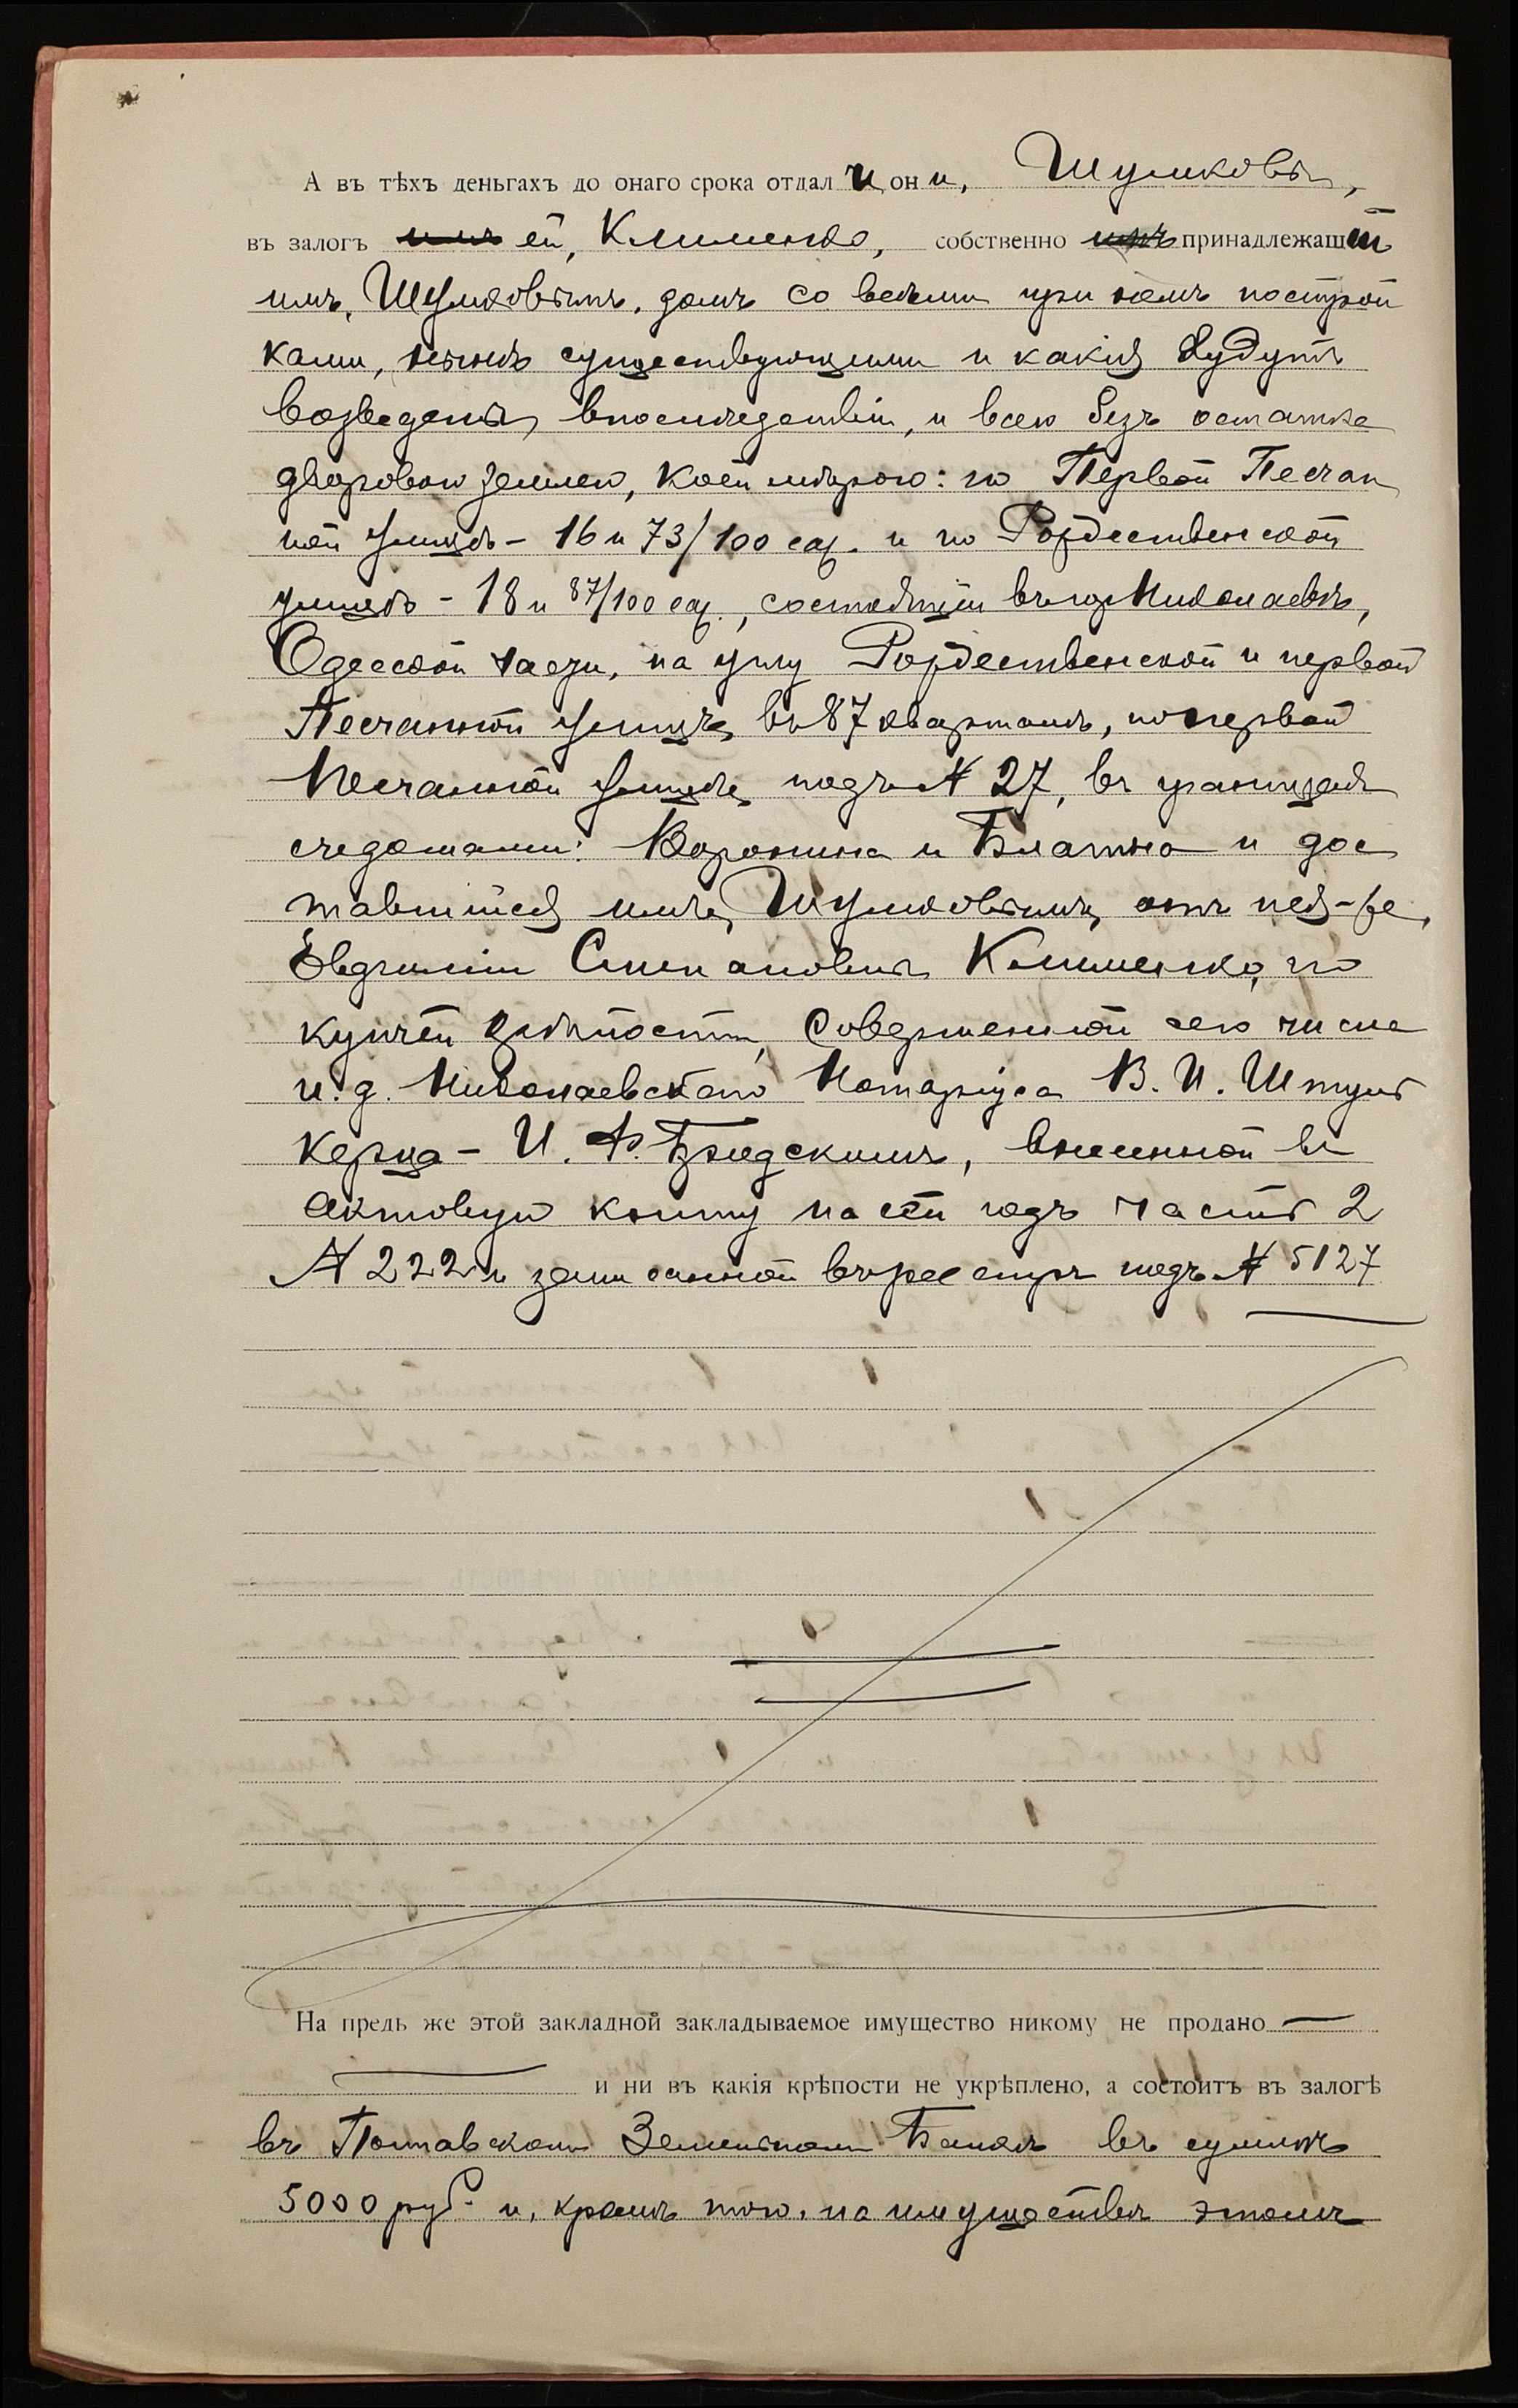 А въ тѣхъ деньгахъ до онаго срока отдали они, Шумковы,
въ залогъ ей, Клименко, собственно принадлежащій
имъ, Шумковымъ, домъ со всѣми при немъ построй
ками, нынѣ существующими и какія будутъ
возведены впослѣдствіи, и всею безъ остатка
дворовою землею, коей мѣрою: по Первой Песчан
ной улицѣ - 16 и 73/100 саж. и по Рождественской
улицѣ - 18 и 87/100 саж., состоящій въ гор. Николаевѣ,
Одесской части, на углу Рождественской и первой
Песчанной улицъ, въ 87 кварталѣ, по первой
Песчанной улицѣ, подъ № 27, въ границахъ
съ домами: Воронина и и дос
тавшійся имъ, Шумковымъ, отъ нея-же,
Степановны Клименко, по
купчей крѣпости, совершенной сего числа
и. д. Николаевскаго Нотаріуса В. И. Штун
керца - И. Ф. Бродскимъ, внесенной въ
актовую книгу на сей годъ часть 2
№ 222 и записанной въ реестръ подъ № 5127
На предь же этой закладной закладываемое имущество никому не продано
и ни въ какія крѣпости не укрѣплено, а состоитъ въ залогѣ
въ Полтавскомъ Земельномъ Банкѣ въ суммѣ
5000 руб. и, кромѣ того, на имуществѣ этомъ